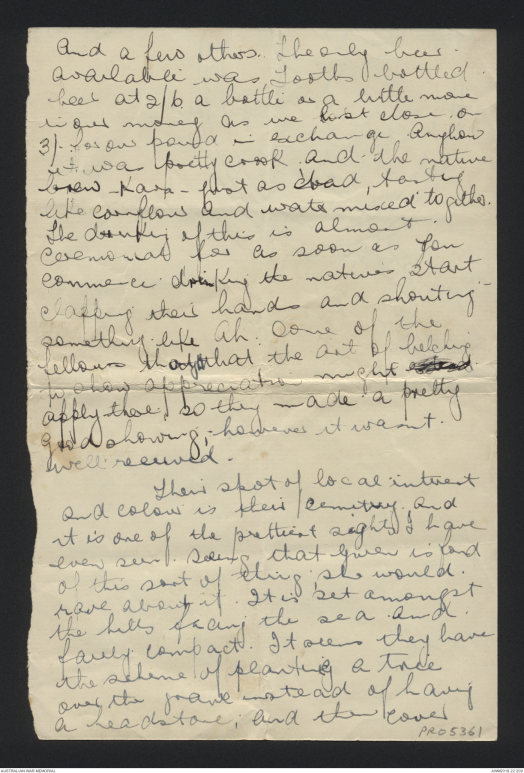 And a few others. The only beer
available was Tooths bottled
beer at 2/6 a bottle or a little more
in our money as we lost close on
3/- for our pound in exchange. Anyhow
it was pretty crook and the native
brew - Kava - just as bad, tasting
like cornflour and water mixed together.
The drinking of this is almost
ceremonial for as soon as you
commence drinking the natives start
clapping their hands and shouting
something like Ah. Some of the
fellows thought that the art of belching
to show appreciation might
apply there, so they made a pretty
good showing; however it wasn't
well received.
Their spot of local interest
and colour is their cemetry, and
it is one of the prettiest sights I have
ever seen. Seeing that Gwen is fond
of this sort of thing she would
rave about it. It is set amongst
the hills facing the sea and
fairly compact. It seems they have
the scheme of planting a tree
over the grave instead of having
a headstone; and then cover
PR05361
AUSTRALIAN WAR MEMORIAL